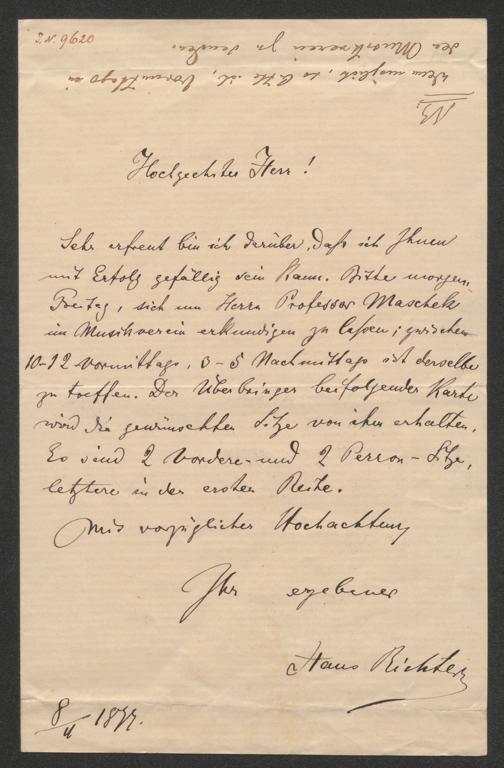 I.N. 9620
Hochgeehrter Herr!
Sehr erfreut bin ich darüber, daß ich Ihnen
mit Erfolg gefällig sein kann. Bitte morgen,
Freitag, sich um Herrn Professor Maschek
im Musikverein erkundigen zu laßen; zwischen
10-12 Vormittags, 3-5 Nachmittags ist derselbe
zu treffen. Der Überbringer beifolgender Karte
wird die gewünschten Sitze von ihm erhalten.
Es sind 2 Vordere- und 2 Perron-Sitze,
letztere in der ersten Reihe.
Mit vorzüglicher Hochachtung
Ihr ergebener
Hans Richter
8/11
NB.
Wenn möglich, so bitte ich, Vormittags in
den Musikverein zu senden.